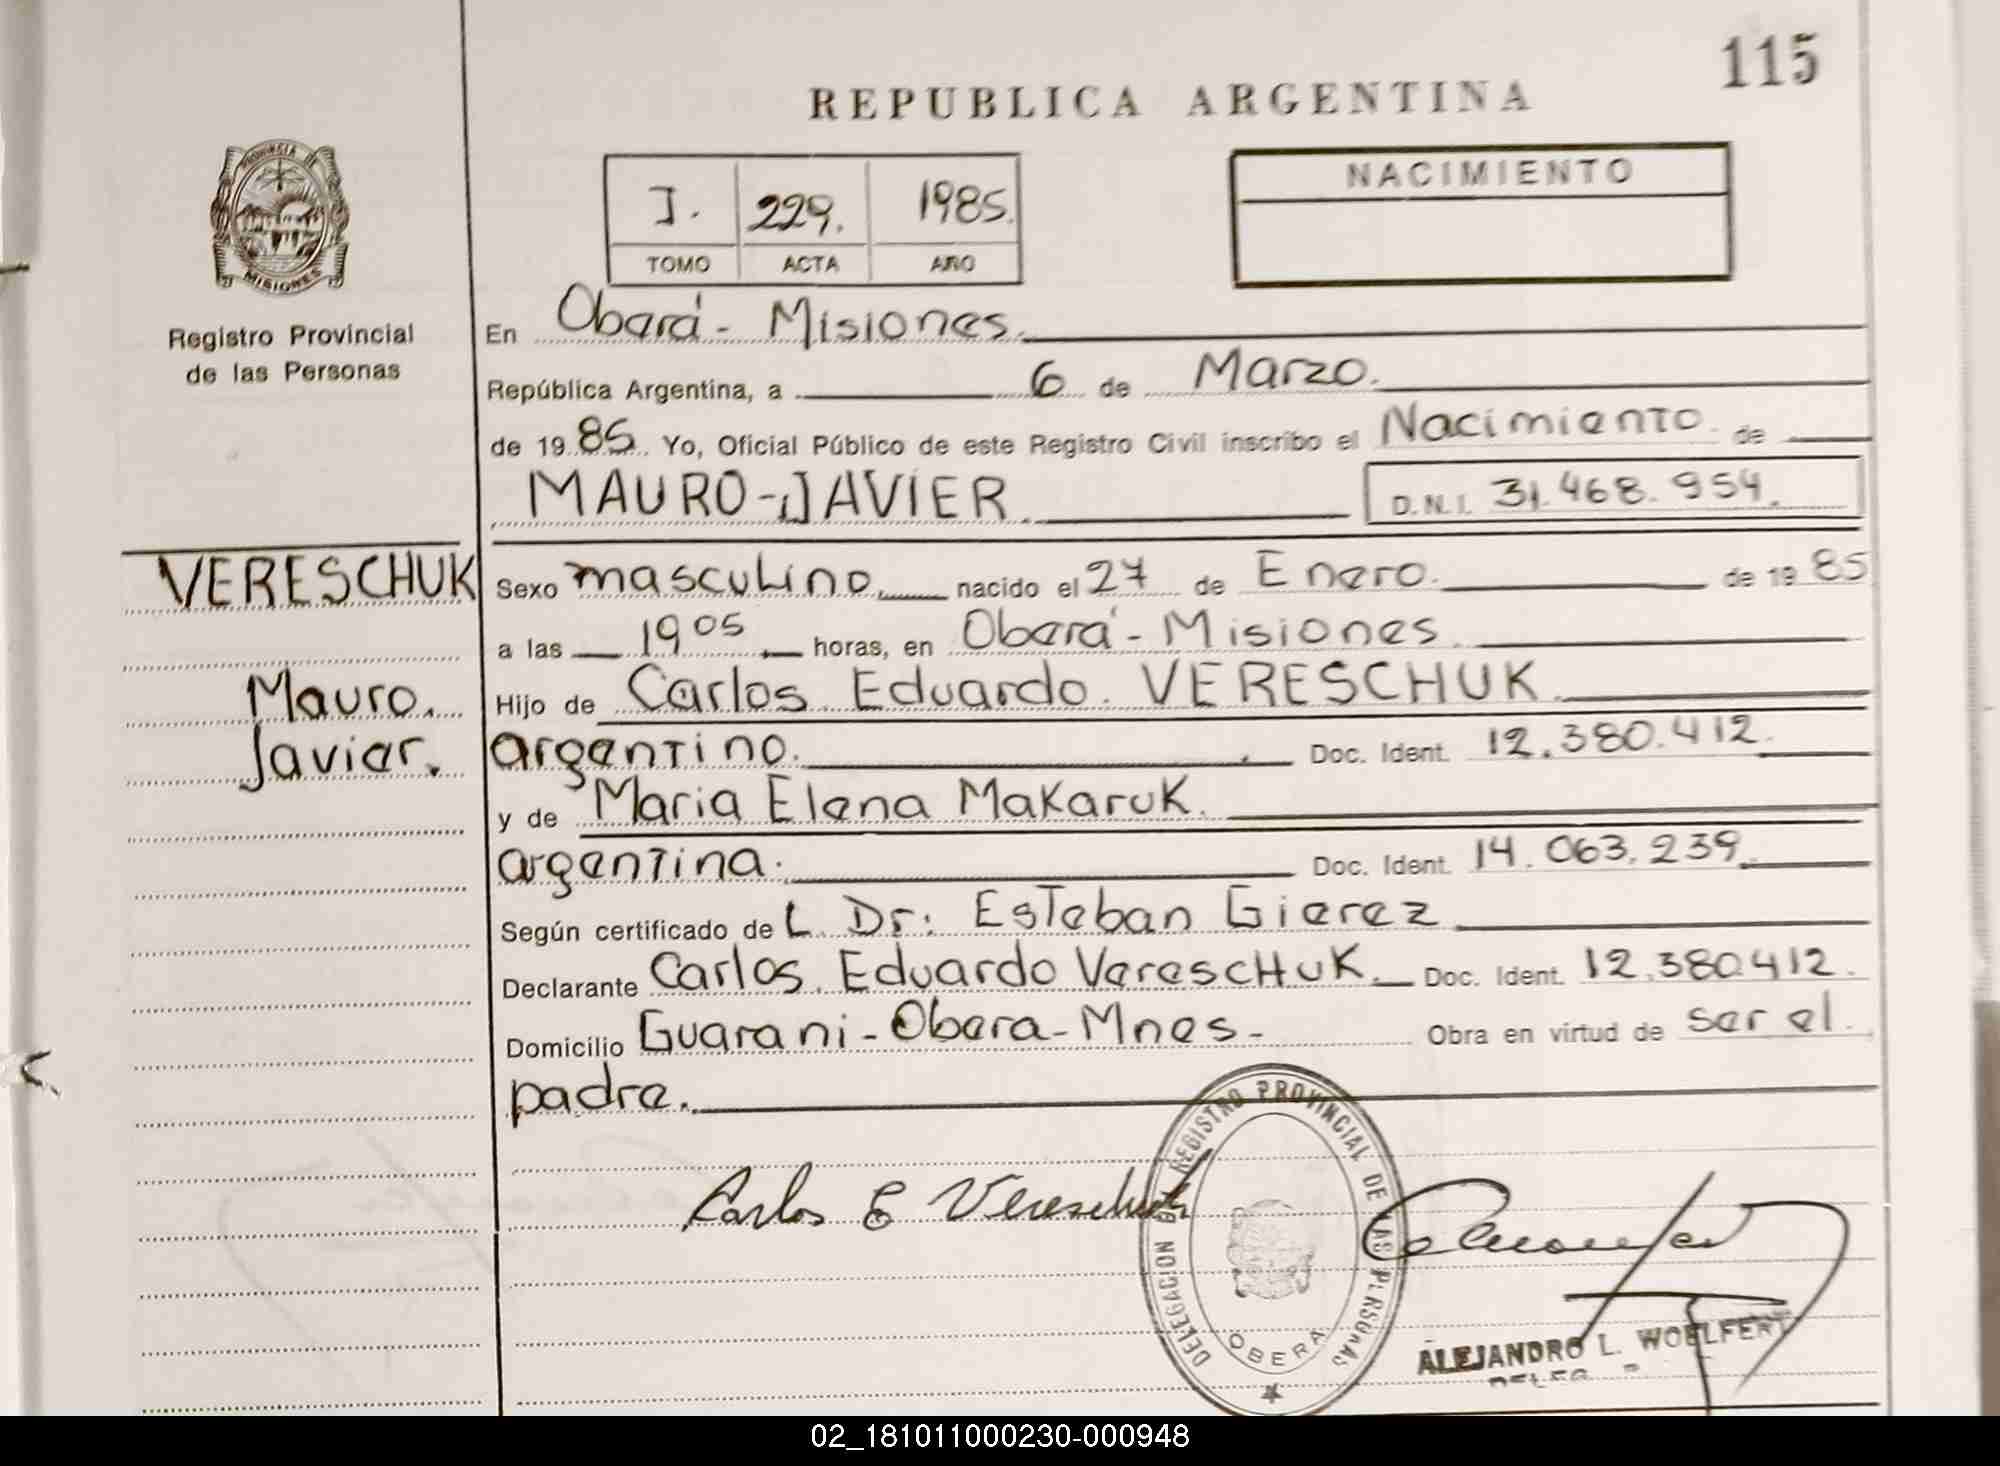 115
REPUBLICA ARGENTINA
PROVINCIA DE
MISIONES
Registro Provincial
de las Personas
I. 229. 1985.
TOMO ACTA AÑO
NACIMIENTO
En Oberá - Misiones.
República Argentina, a 6 de Marzo.
de 19 85. Yo, Oficial Público de este Registro Civil inscribo el Nacimiento de
MAURO-JAVIER D.N.I. 31.468.954.
VERESCHUK
Mauro.
Javier.
Sexo masculino, nacido el 27 de Enero. de 19 85
a las 19 05 horas, en Oberá - Misiones.
Hijo de Carlos Eduardo VERESCHUK
argentino. Doc. Ident. 12.380.412.
y de Maria Elena Makaruk.
argentina. Doc. Ident. 14.063.239
Según certificado de L Dr: Esteban Gierez
Declarante Carlos Eduardo Vereschuk. Doc. Ident. 12.380412.
Domicilio Guarani - Obera - Mnes - Obra en virtud de ser el
padre.
Carlos E Vereschuk
DELEGACION DEL REGISTRO PROVINCIAL DE LAS PERSONAS
OBERA
ALEJANDRO L. WOELFERT
02_181011000230-000948